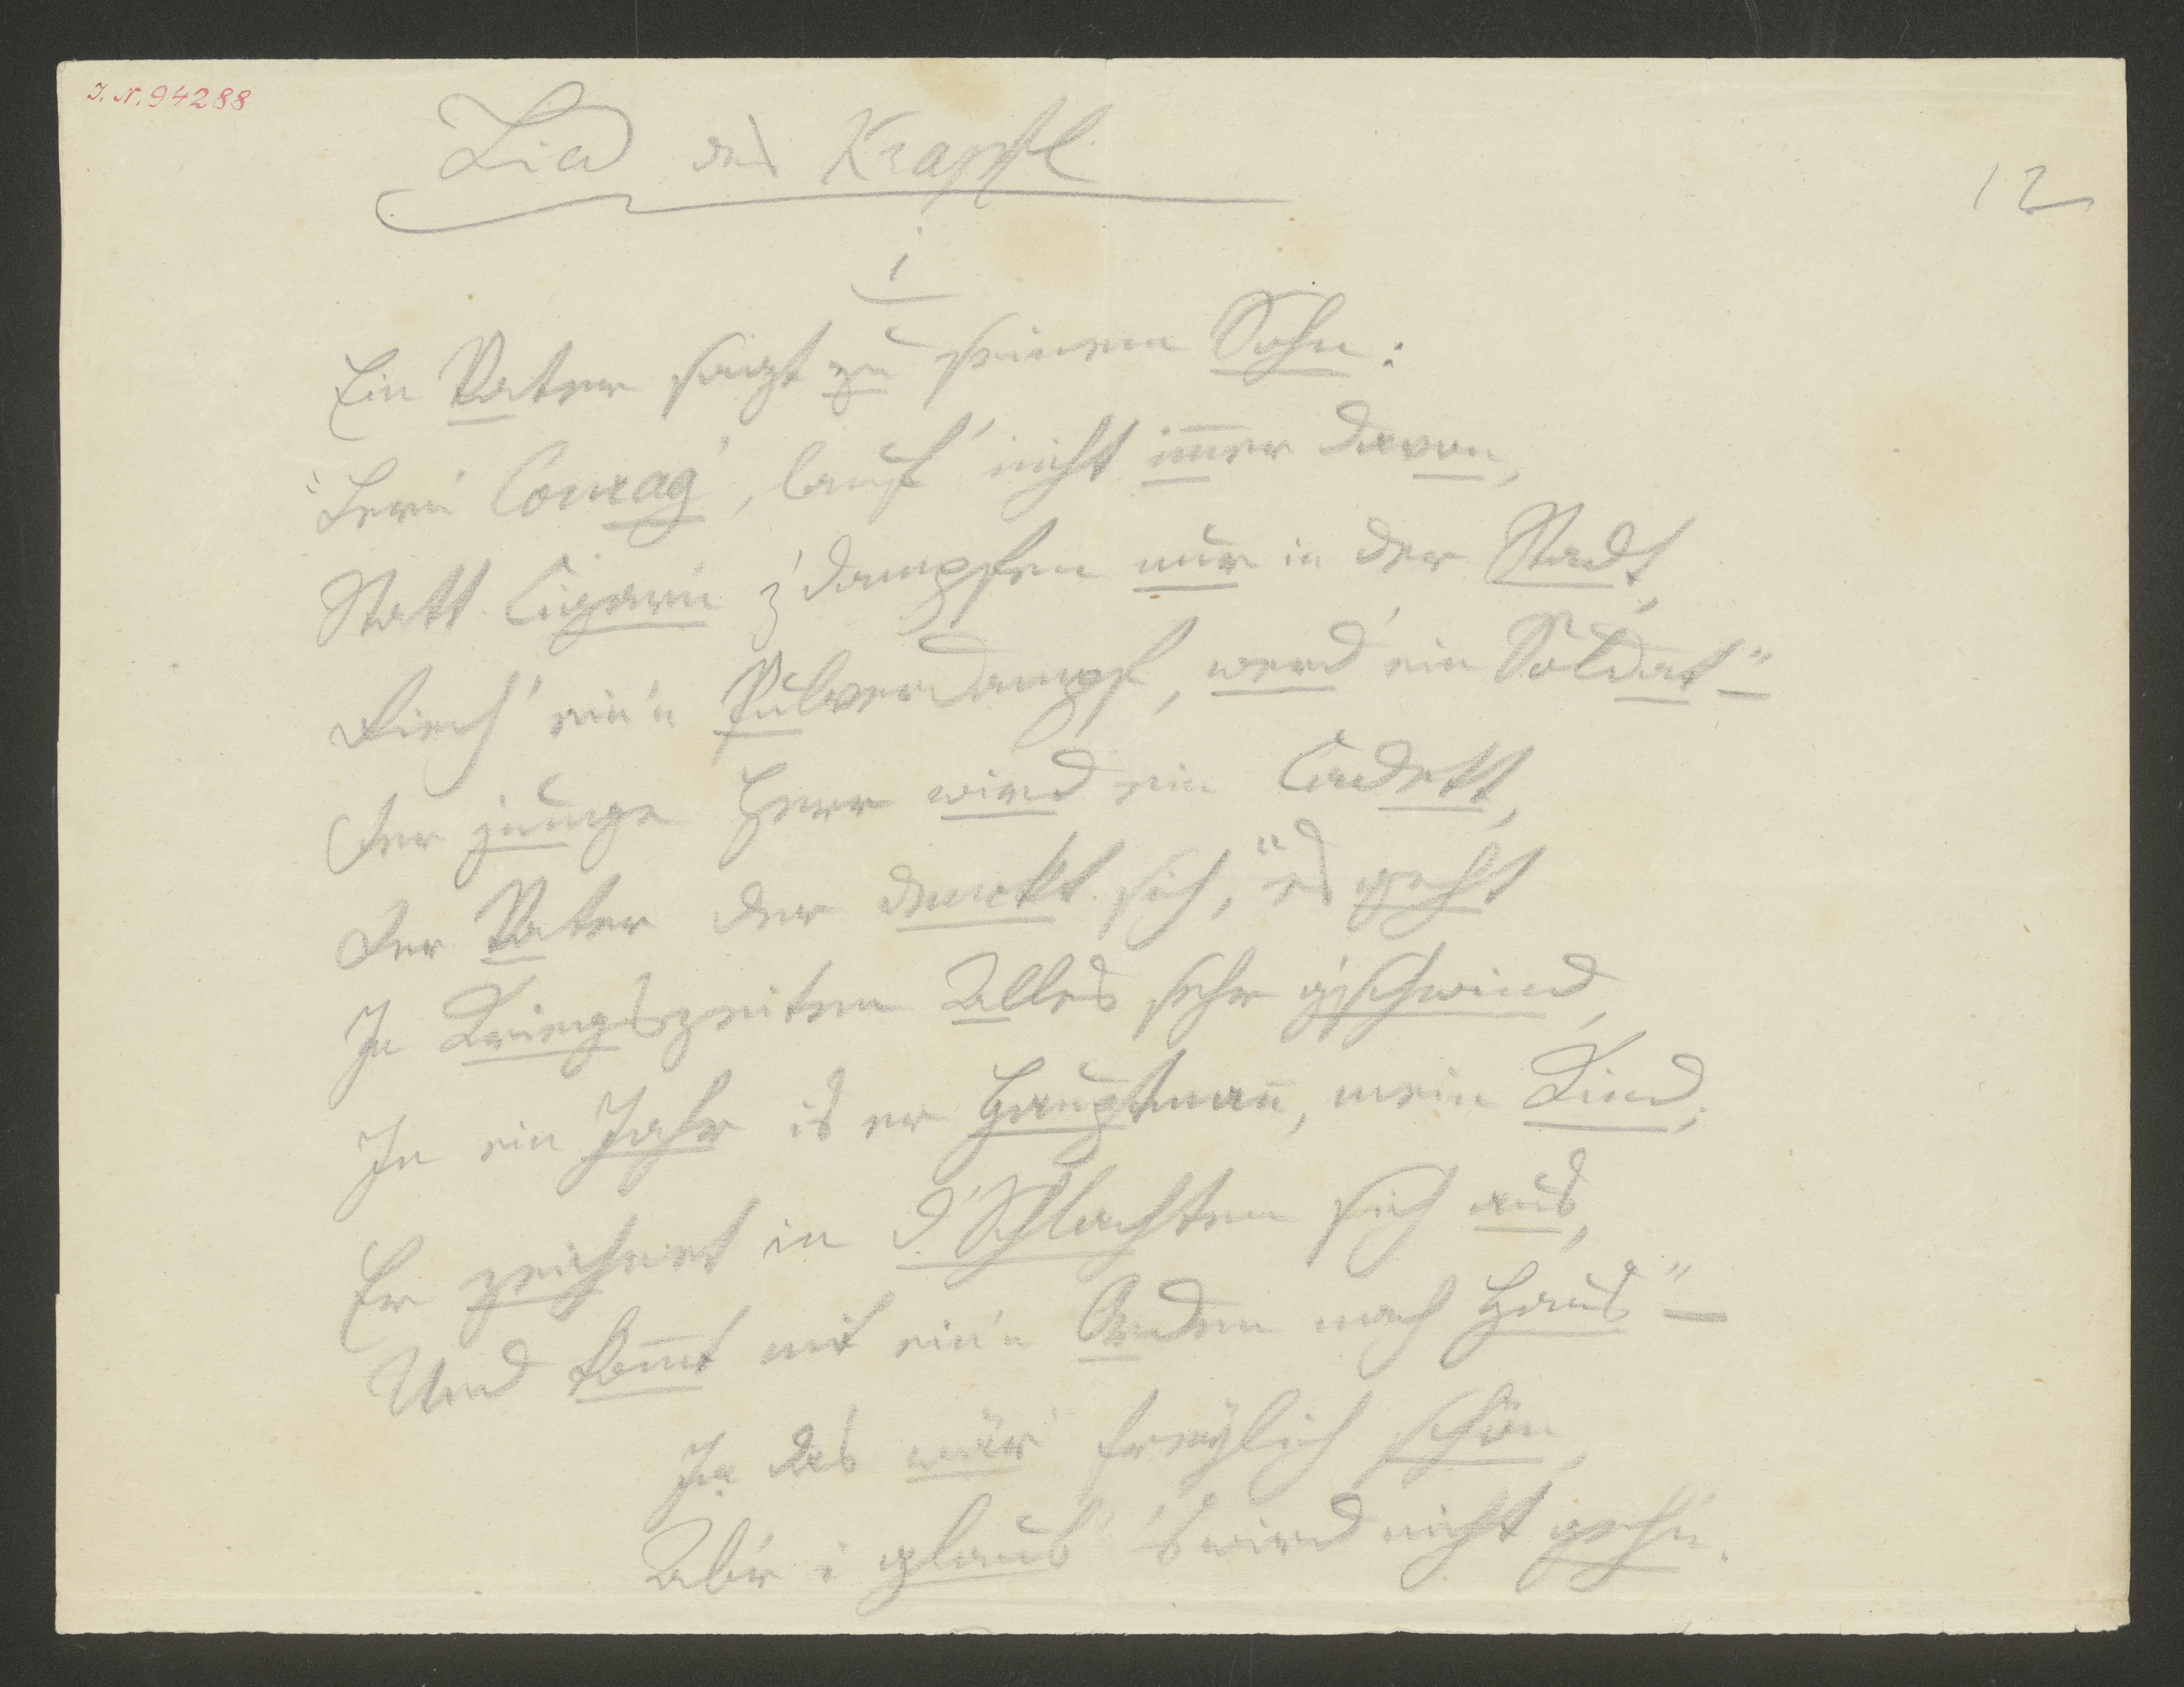 I. N. 94288
Lied des Krapfl
12
1
Ein Vater sagt zu seinem Sohn:
"Lern' Courag', lauf' nicht im̅er davon,
Statt Cigarrn z'dampfen nur in der Stadt,
Riech' ein'n Pulverdampf, werd' ein Soldat" –
Der junge Herr wird ein Cadett,
Der Vater der denckt sich, "es geht
In Kriegszeiten Alles sehr g'schwind,
In ein Jahr is er Hauptman̅, mein Kind;
Er zeichnet in d'Schlachten sich aus,
Und kom̅t mit ein'n Orden nach Haus" –
Ja das wär' freylich schön,
Ab'r i glaub' 's wird nicht gehn.